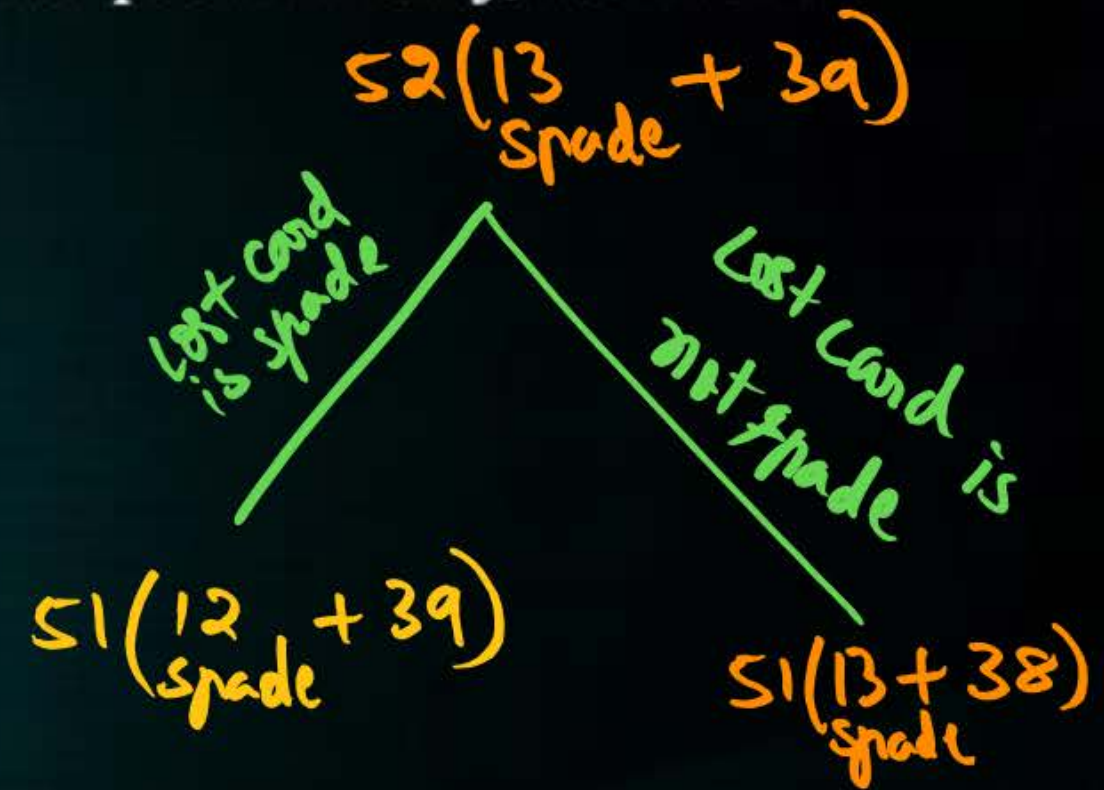 52(13 + 39)
spade
Lost card
is spade
Lost card is
not spade
51(12 + 39)
spade
51(13 + 38)
spade